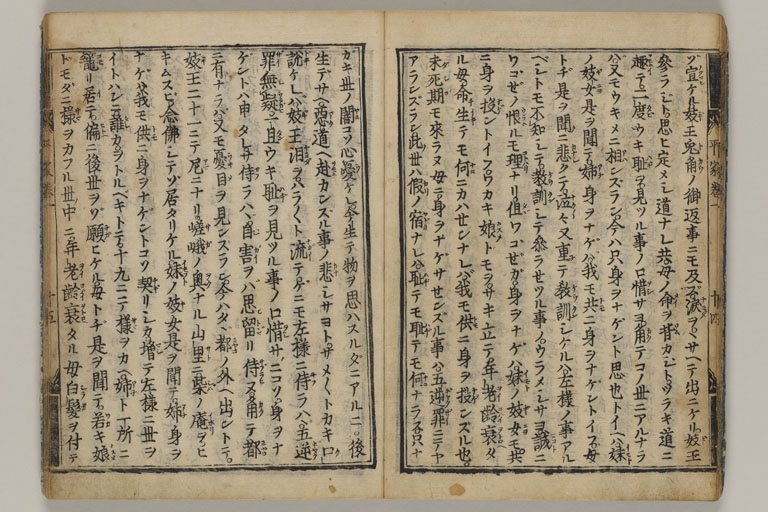 ソ宣ケル妓王兎角ノ御返事ニモ及ズ涙ヲヲサヘテ出ニケリ妓王
参ラジト思ヒ定メシ道ナレ共母ノ命ヲ背カジトツラキ道ニ
趣テ二度ウキ耻ヲ見ツル事ノ口惜サヨ角テコノ世ニアルナラ
バ又モウキメニ相ンズラン今ハ只身ヲナゲント思也トイヘバ妹
ノ妓女是ヲ聞テ姉身ヲナゲバ我モ共ニ身ヲナゲントイフ母
トヂ是ヲ聞ニ悲クテ泣々又重テ教訓シケルハ左様ノ事アル
ベシトモ不知シテ教訓シテ参ラセツル事ノウラメシサヨ誠ニ
ワコゼノ恨ルモ理ナリ但ワコゼガ身ヲナゲバ妹ノ妓女モ共
ニ身ヲ投ントイフワカキ娘トモヲサキ立テ年老齢衰タ
ル母命生テモ何ニカハセンナレバ我モ供ニ身ヲ投ンズル也
未死期モ來ラヌ母ニ身ヲナゲサセンズル事ハ五逆罪ニテヤ
アランズラン此世ハ假ノ宿ナレバ耻テモ耻テモ何ナラズ只ナ
平家巻一
十四
カキ世ノ闇コソ心憂ケレ今生テ物ヲ思ハスルダニアルニ後
生デサヘ悪道ヘ赴カンズル事ノ悲シサヨトサメ〳〵トカキ口
説ケレバ妓王泪ヲハラ〳〵ト流テゲニモ左様ニ侍ラバ五逆
罪無疑一旦ウキ耻ヲ見ツル事ノ口惜サニコソ身ヲナ
ゲント申タレサ侍ラバ自害ヲバ思留リ侍又角テ都
ニ有ナラバ又モ憂目ヲ見ンズラン今ハタヾ都ノ外ヘ出ントテ
妓王二十一ニテ尼ニナリ嵯峨ノ奥ナル山里ニ柴ノ庵ヲヒ
キムスビ念佛シテゾ居タリケル妹ノ妓女是ヲ聞テ姉身ヲ
ナゲバ我モ供ニ身ヲナゲントコソ契リシカ増テ左様ニ世ヲ
イトハンニ誰カヲトルベキトテ十九ニテ様ヲカヘ姉ト一所ニ
籠リ居テ偏ニ後世ヲゾ願ヒケル母トヂ是ヲ聞テ若キ娘
トモダニ様ヲカフル世中ニ年老齢衰タル母白髪ヲ付テ
十五